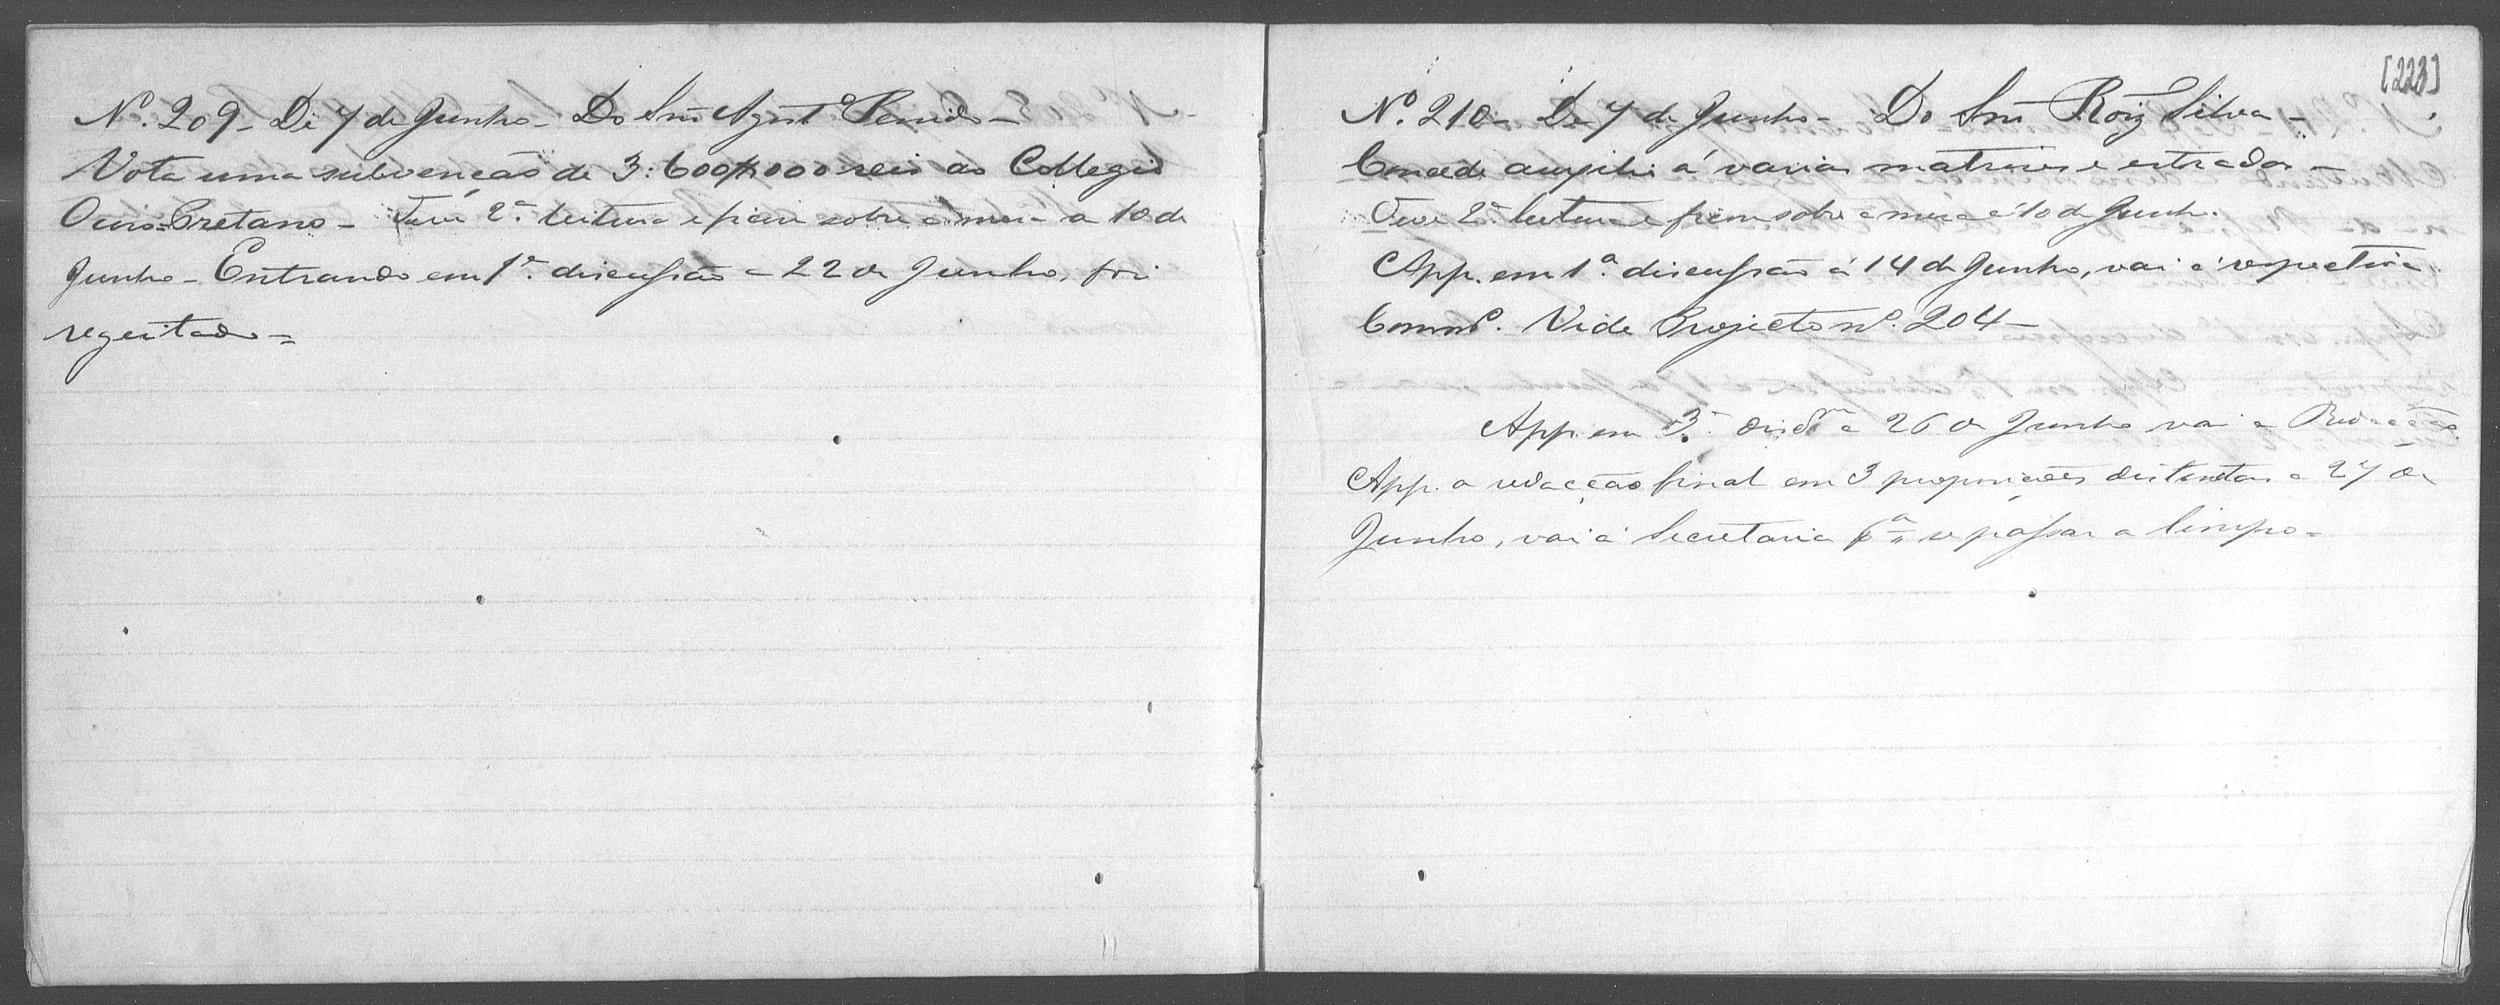 Nº. 209 - De 7 de Junho - Do Snr Agostº Penido -
Vota uma subvenção de 3:600$000 reis ao Collegio
Ouro-Pretano - Teve 2ª leitura e ficou sobre a mesa a 10 de
Junho - Entrando em 1ª discussão a 22 de Junho, foi
regeitado =
[223]
Nº. 210 - De 7 de Junho - Do Snr Roiz Silva -
Concede auxilio á varias matrizes e estradas -
Teve 2ª leitura e ficou sobre a mesa á 10 de Junho.
App. em 1ª discussão á 14 de Junho, vai á respectiva
Commº. Vide Projecto nº. 204 -
App. em 3ª disc a 26 de Junho vai a Redacção.
App. a redacção final em 3 proposições distinctas a 27 de
Junho, vai á Secretaria pª se passar a limpo =